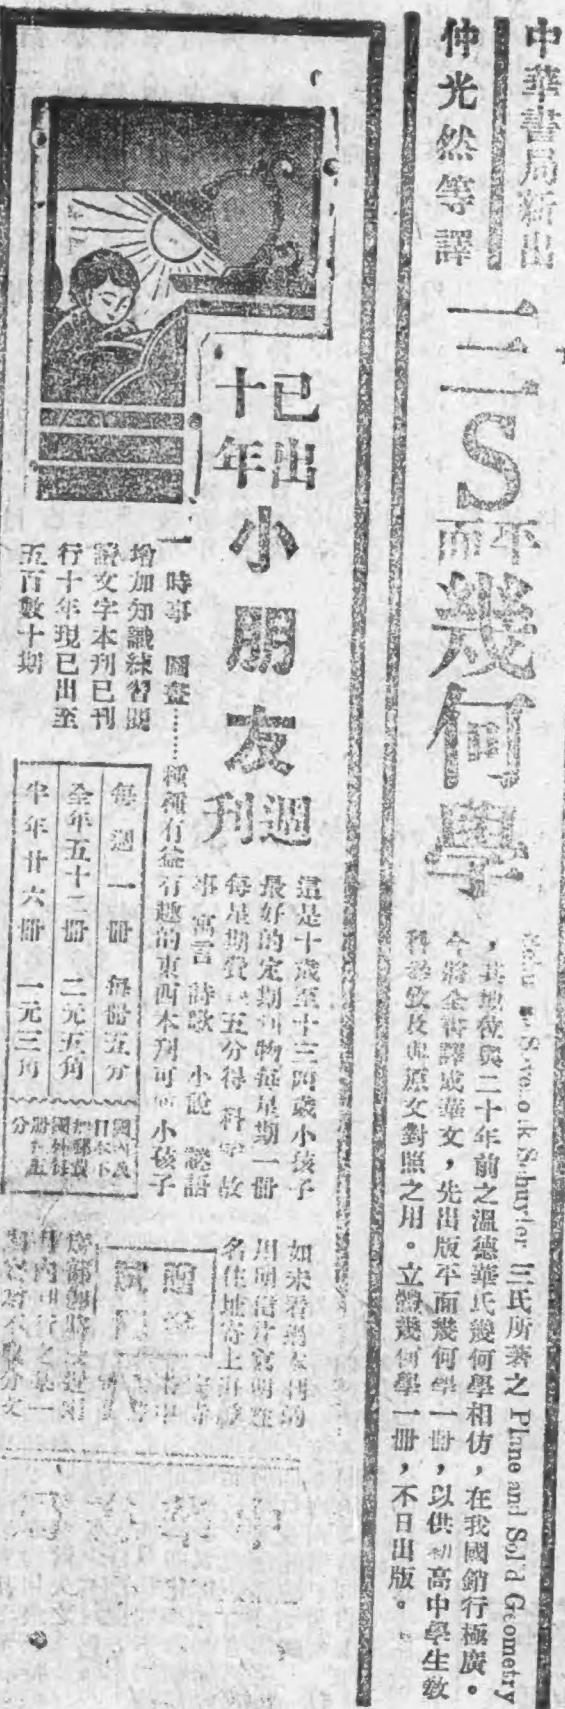 中華書局新出
仲光然等譯
三S
平面
幾何學
Schuyler 三氏所著之 Plane and Solid Geometry
，其地位與二十年前之溫德華氏幾何學相仿，在我國銷行極廣。
今將全書譯成華文，先出版平面幾何學一冊，以供初高中學生教
科參攷及與原文對照之用。立體幾何學一冊，不日出版。
已出
十年
小朋友
週刊
這是十歲至十三四歲小孩子
最好的定期刊物每星期一冊
每星期費 五分得 科學 故
事 寓言 詩歌 小說 謎語
時事 圖畫……種種有益有趣的東西本刊可 小孩子
增加知識練習閱
讀文字本刊已刊
行十年現已出至
五百數十期
每週一冊 每冊五分
全年五十二冊 二元五角
半年廿六冊 一元三角
國內及
日本不
加郵費
國外每
冊
分
如未看過本刊的
用明信片寫明姓
名住址寄上海
中華書局